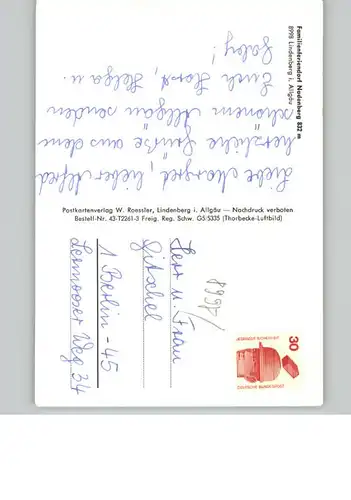 Familienferiendorf Nadenberg 832 m
8998 Lindenberg i. Allgäu
Liebe Margret, lieber Alfred
herzliche Grüße aus dem
schönen Allgäu senden
Euch Horst, Helga u.
Gaby!
Postkartenverlag W. Roessler, Lindenberg i. Allgäu — Nachdruck verboten
Bestell-Nr. 43-T2261-3 Freig. Reg. Schw. G5/5335 (Thorbecke-Luftbild)
30
DEUTSCHE BUNDESPOST
8998/
Herr u. Frau
Gitschel
1 Berlin-45
Lermooser Weg 34